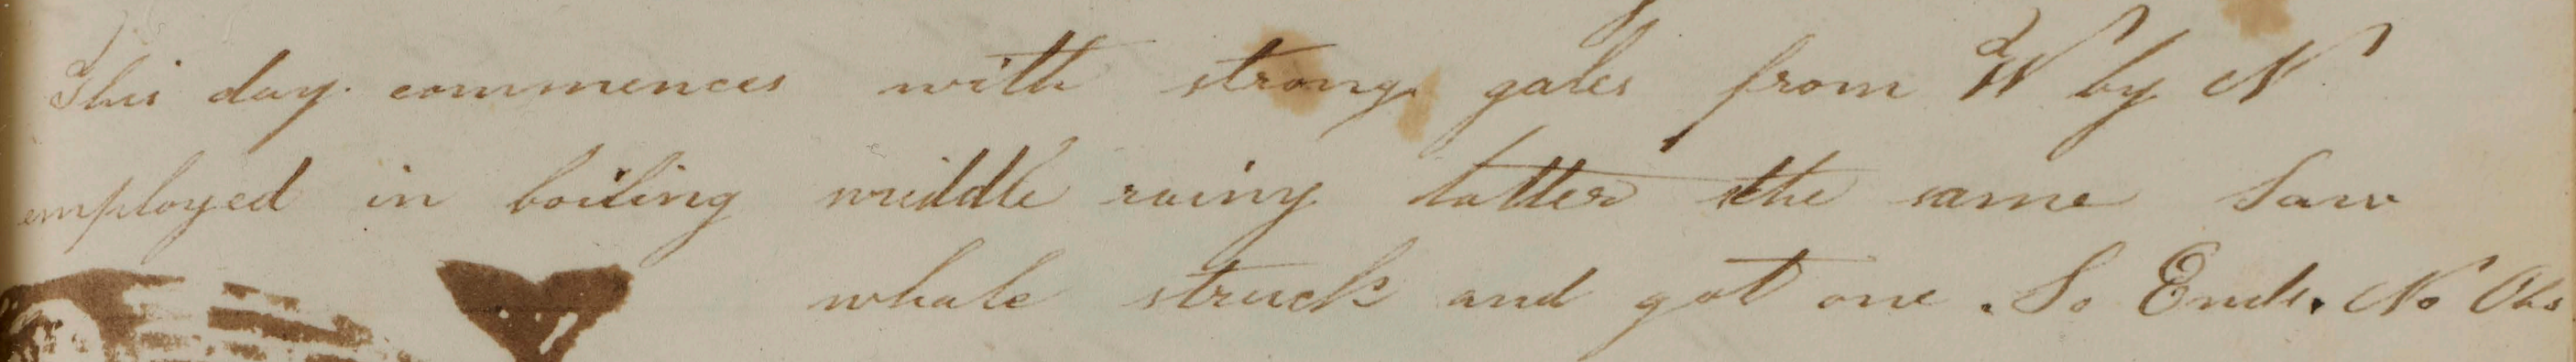 This day commences with strong gales from W by N
employed in boiling middle rainy latter the same Saw
whale struck and got one. So Ends. No Obs